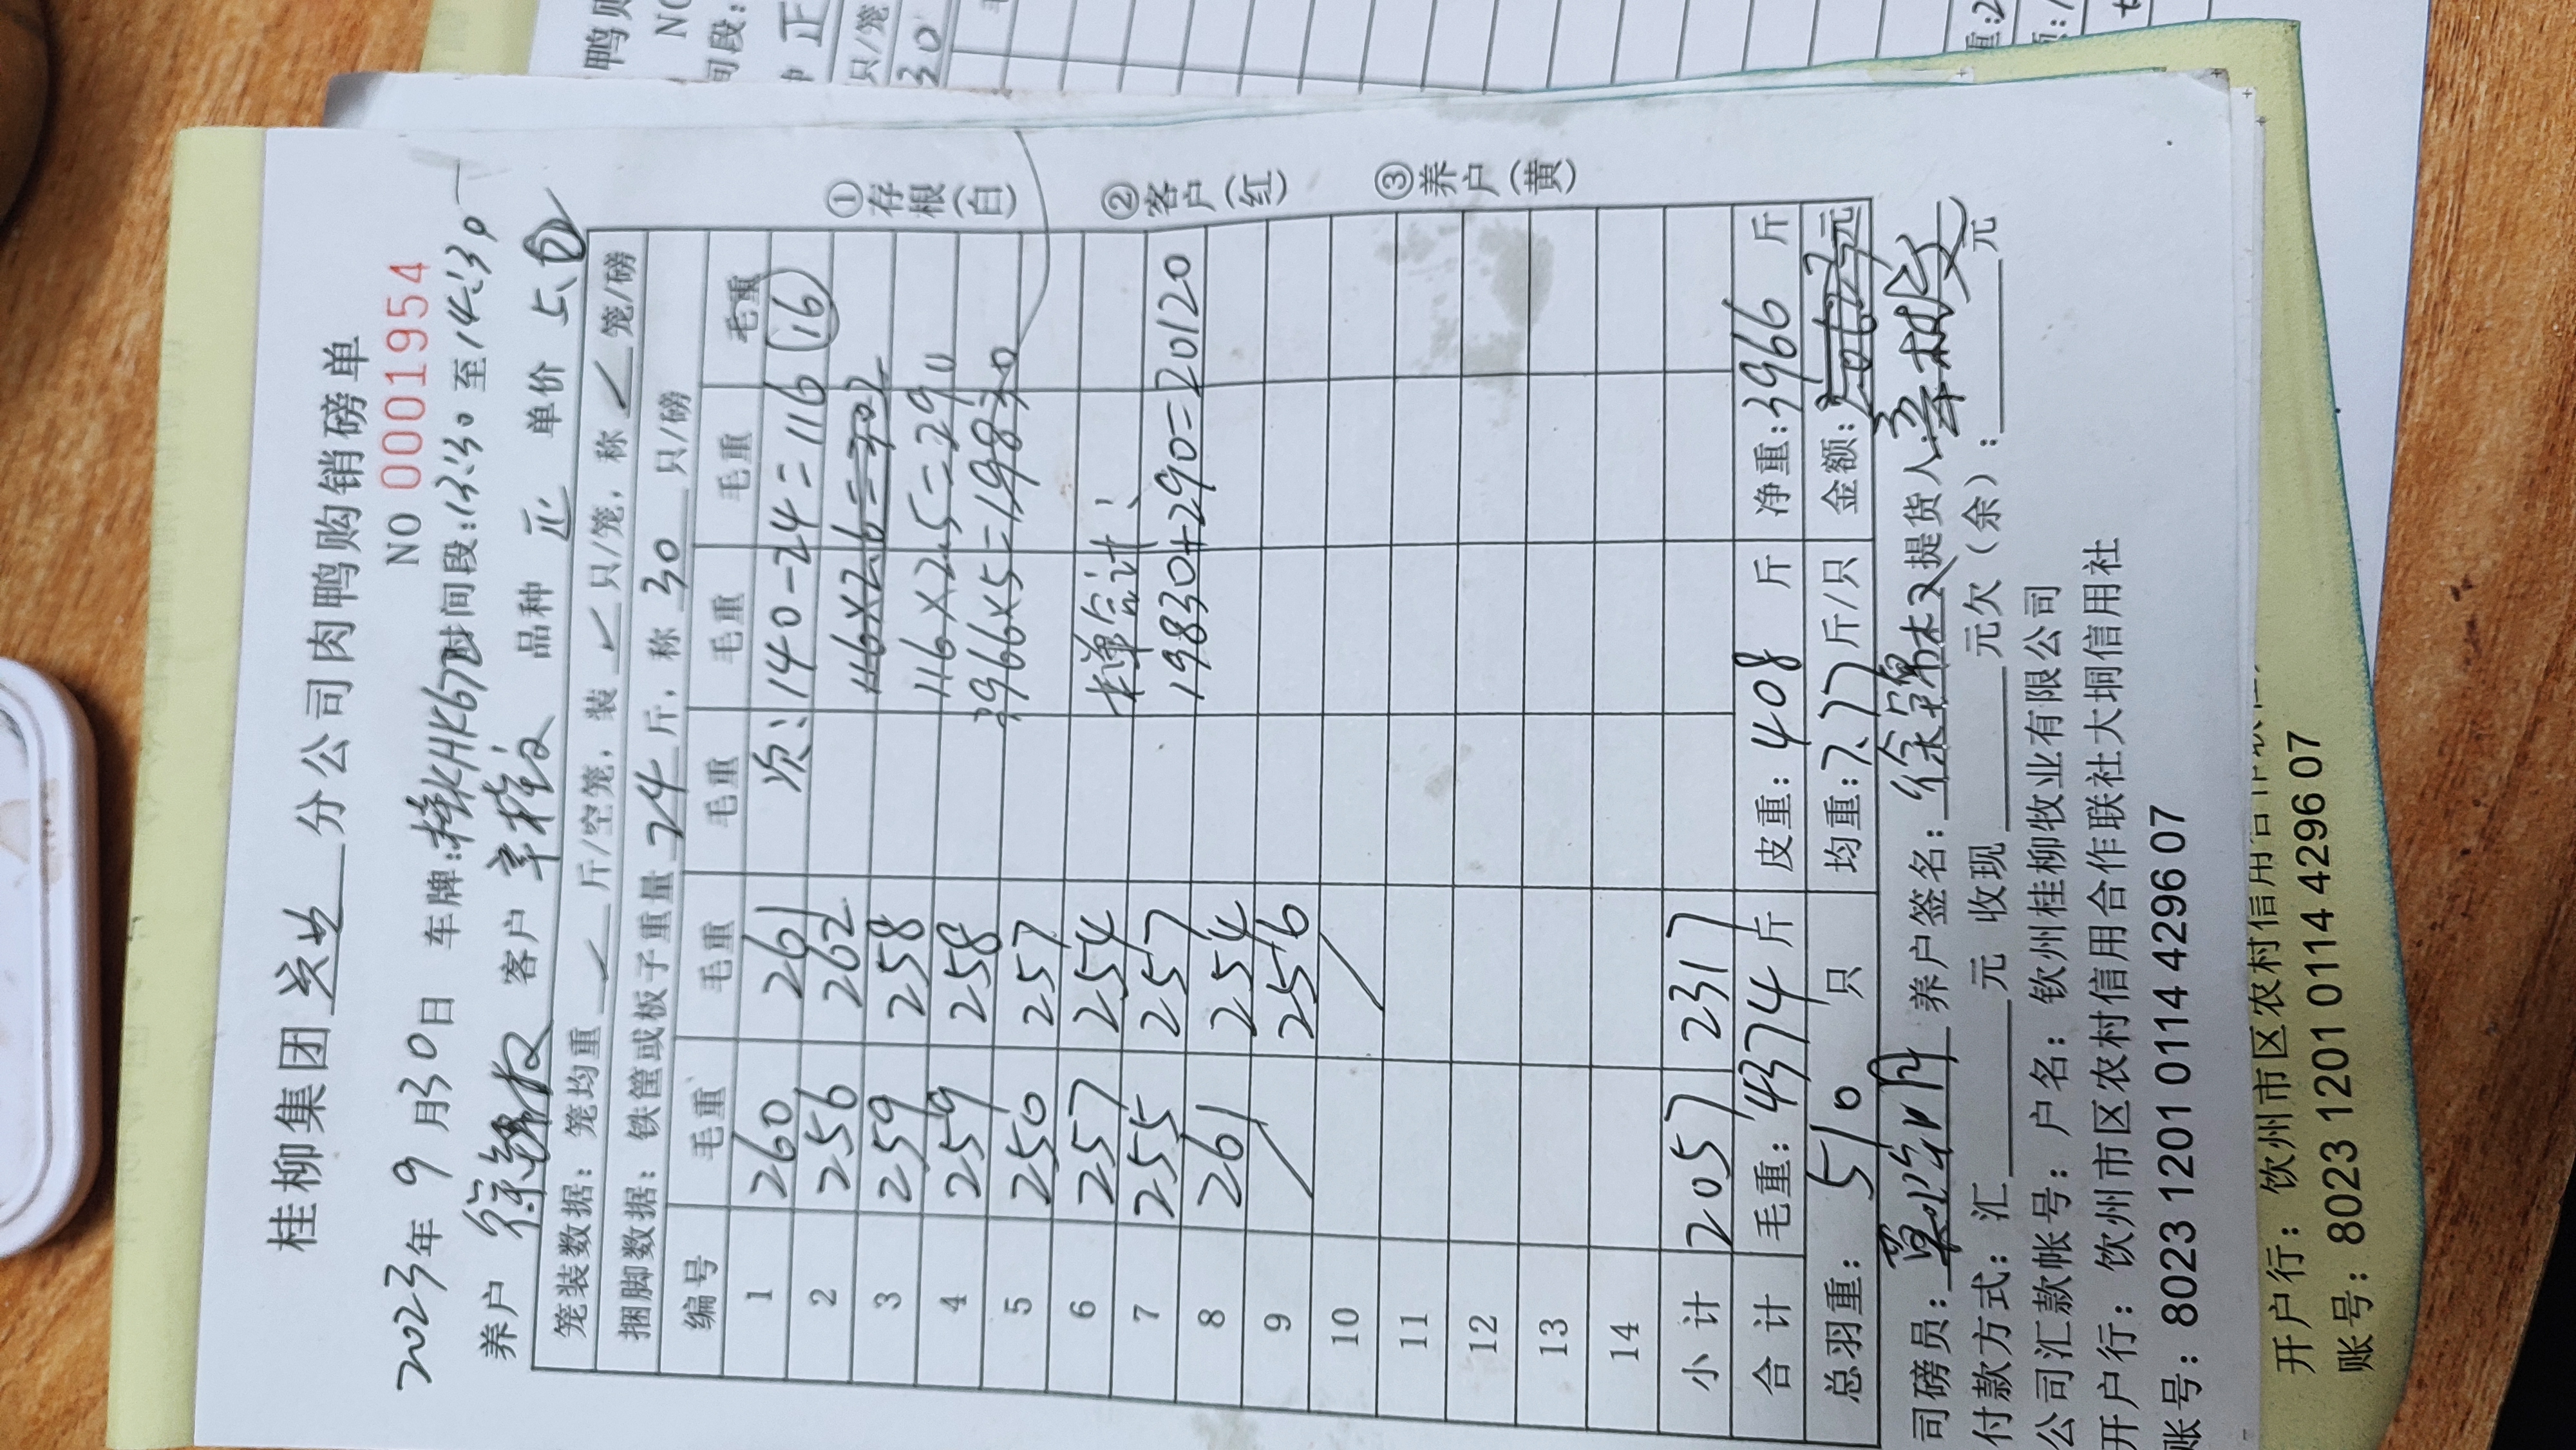 桂柳集团 分公司肉鸭购销磅单
NO 0001954
2023年 9月30日 车牌: 时间段:13:30至14:30
养户 客户 品种 正 单价 5.0
笼装数据: 笼均重 ✓ 斤/空笼, 装 ✓ 只/笼, 称 ✓ 笼/磅
捆脚数据: 铁筐或板子重量 24 斤, 称 30 只/磅
编号 毛重 毛重 毛重 毛重 毛重 毛重
1 260 261 次: 140-24=116 (16)
2 256 262 116×2.6=302
3 259 258 116×2.5=290
4 259 258 3966×5=19830
5 250 257
6 257 254 本单合计:
7 255 257 19830+290=20120
8 261 254
9 256
10
11
12
13
14
小计 2057 2317
合计 毛重: 4374 斤 皮重: 408 斤 净重: 3966 斤
总羽重: 510 只 均重: 7.77 斤/只 金额: 元
司磅员: 养户签名: 徐锦权 提货人:
付款方式: 汇 元 收现 元欠(余): 元
公司汇款帐号: 户名: 钦州桂柳牧业有限公司
开户行: 钦州市区农村信用合作联社大垌信用社
账号: 8023 1201 0114 4296 07
①存根(白) ②客户(红) ③养户(黄)
开户行: 钦州市区农村信用合作联社
账号: 8023 1201 0114 4296 07